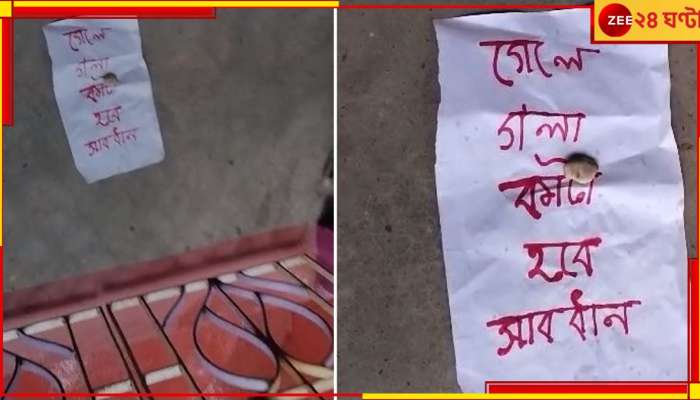 গেলে
গলা
কাটা
হবে
সাবধান
ZEE ২৪ ঘণ্টা
গেলে
গলা
কাটা
হবে
সাবধান